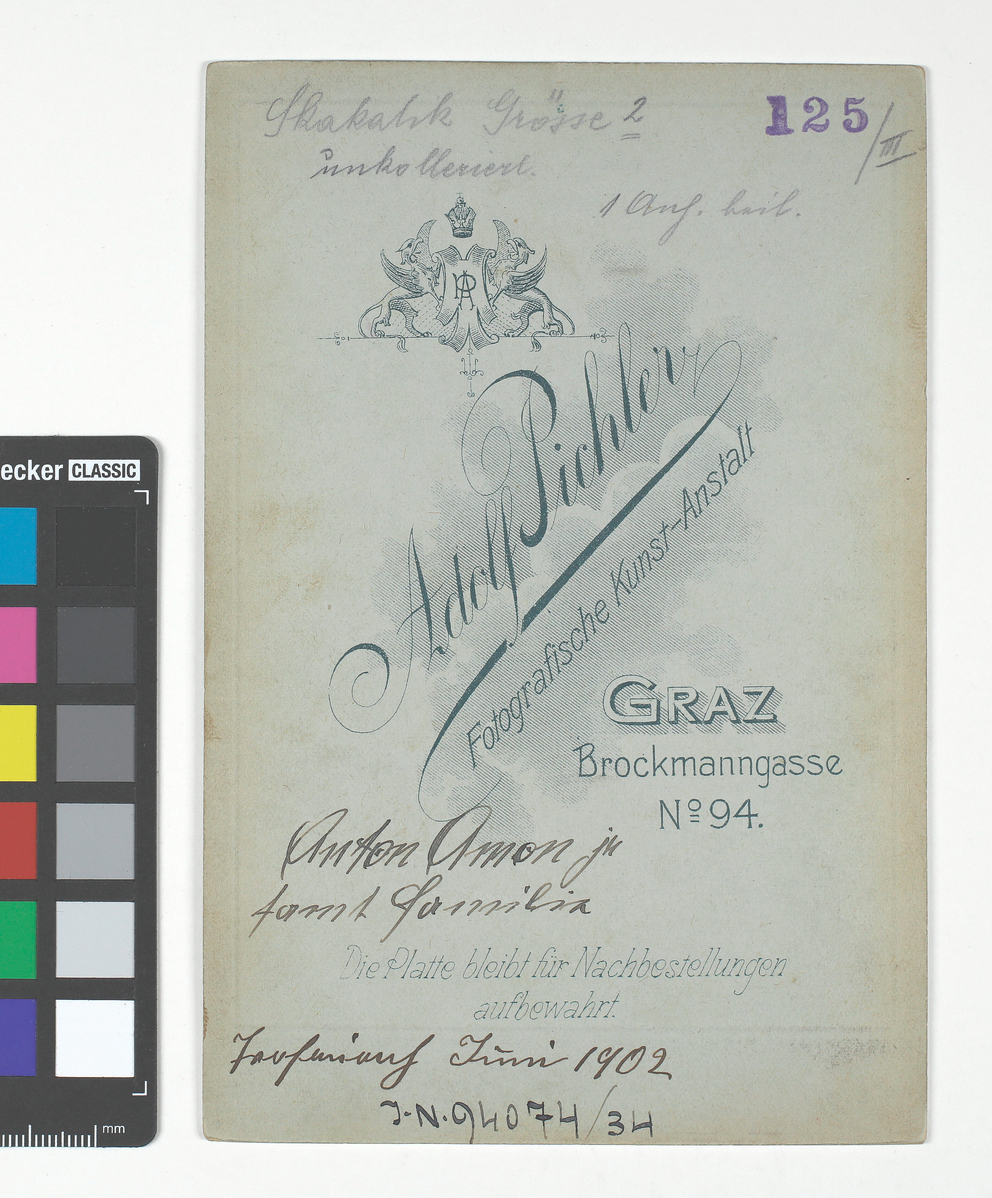 Skakalik Grösse 2
125/III
unkolleriert.
1 Auf. heil.
PA
Adolf Pichler
Fotografische Kunst-Anstalt
GRAZ
Brockmanngasse
Nº 94.
Anton Amon ju
samt Familie
Die Platte bleibt für Nachbestellungen
aufbewahrt.
Trofaiach Juni 1902
J.N. 94074/34
ecker CLASSIC
mm